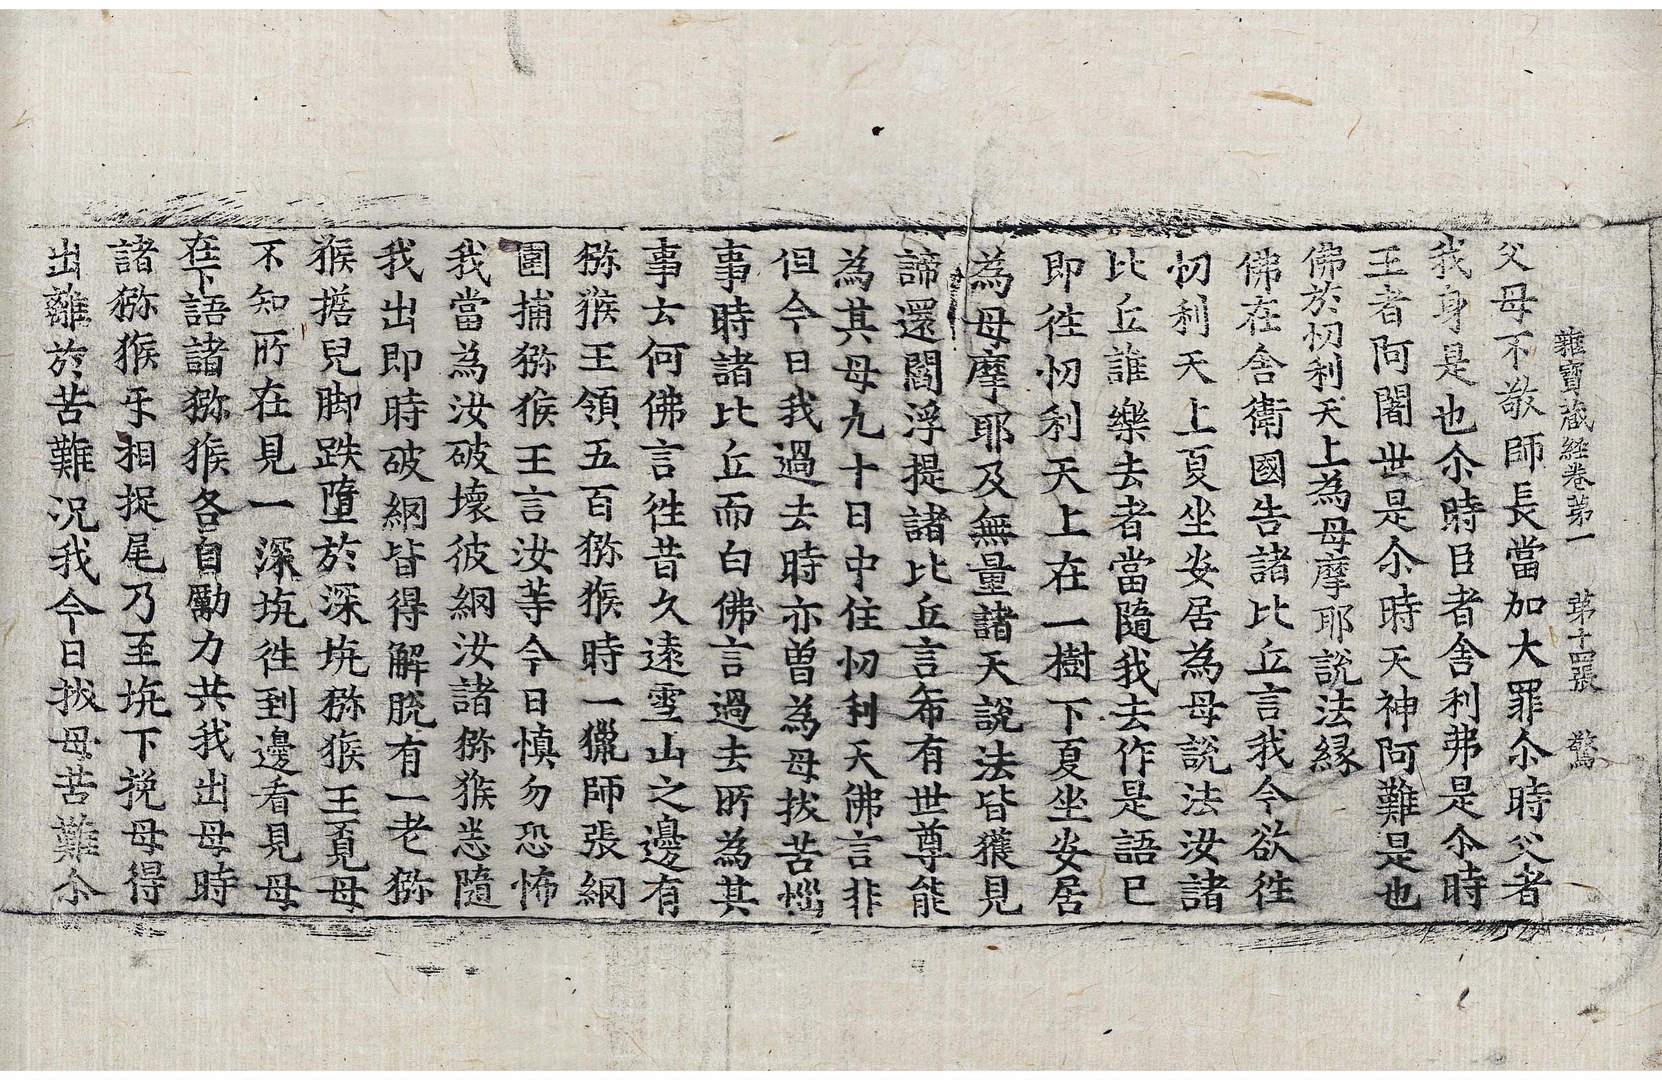 雜寶藏経卷苐一 苐十四張 驚
父母不敬師長當加大罪尒時父者
我身是也尒時臣者舎利弗是尒時
王者阿闍世是尒時天神阿難是也
佛於忉利天上為母摩耶說法縁
佛在舎衛國告諸比丘言我今欲徃
忉利天上夏坐安居為母說法汝諸
比丘誰樂去者當隨我去作是語已
即徃忉利天上在一樹下夏坐安居
為母摩耶及無量諸天說法皆獲見
諦還閻浮提諸比丘言希有世尊能
為其母九十日中住忉利天佛言非
但今日我過去時亦曽為母拔苦惱
事時諸比丘而白佛言過去所為其
事云何佛言徃昔久遠雪山之邊有
獼猴王領五百獼猴時一獵師張網
圍捕獼猴王言汝等今日慎勿恐怖
我當為汝破壞彼網汝諸獼猴悉隨
我出即時破網皆得解脫有一老獼
猴擔兒脚跌墮於深坑獼猴王覓母
不知所在見一深坑徃到邊看見母
在下語諸獼猴各自勵力共我出母時
諸獼猴牙相捉尾乃至坑下挽母得
出離於苦難況我今日拔母苦難尒